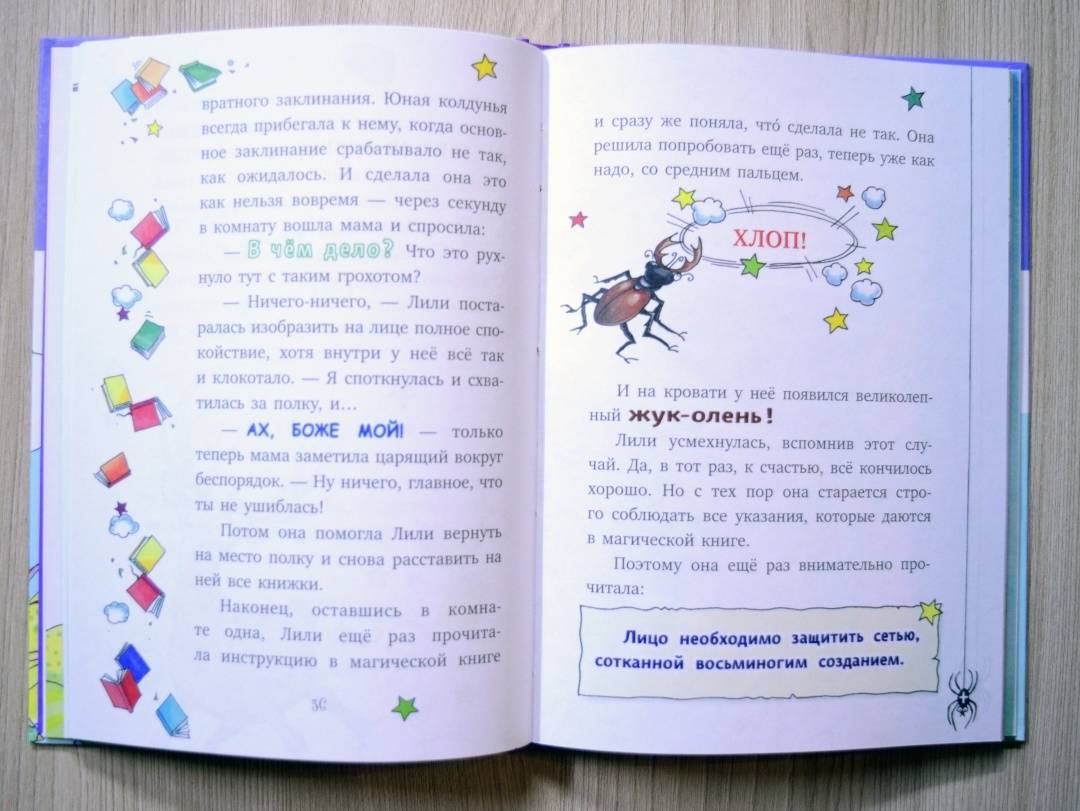 вратного заклинания. Юная колдунья
всегда прибегала к нему, когда основ-
ное заклинание срабатывало не так,
как ожидалось. И сделала она это
как нельзя вовремя — через секунду
в комнату вошла мама и спросила:
— В чём дело? Что это рух-
нуло тут с таким грохотом?
— Ничего-ничего, — Лили поста-
ралась изобразить на лице полное спо-
койствие, хотя внутри у неё всё так
и клокотало. — Я споткнулась и схва-
тилась за полку, и…
— АХ, БОЖЕ МОЙ! — только
теперь мама заметила царящий вокруг
беспорядок. — Ну ничего, главное, что
ты не ушиблась!
Потом она помогла Лили вернуть
на место полку и снова расставить на
ней все книжки.
Наконец, оставшись в комна-
те одна, Лили ещё раз прочита-
ла инструкцию в магической книге
36
и сразу же поняла, что́ сделала не так. Она
решила попробовать ещё раз, теперь уже как
надо, со средним пальцем.
ХЛОП!
И на кровати у неё появился великолеп-
ный жук-олень!
Лили усмехнулась, вспомнив этот слу-
чай. Да, в тот раз, к счастью, всё кончилось
хорошо. Но с тех пор она старается стро-
го соблюдать все указания, которые даются
в магической книге.
Поэтому она ещё раз внимательно про-
читала:
Лицо необходимо защитить сетью,
сотканной восьминогим созданием.